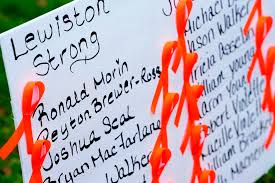 Lewiston
Strong
Ronald Morin
Peyton Brewer-Ross
Joshua Seal
Bryan MacFarlane
Walker
Michael D
Jason Walker
Tricia Asse
William Young
Aaron Young
Robert Violette
Lucille Violette
William Brack